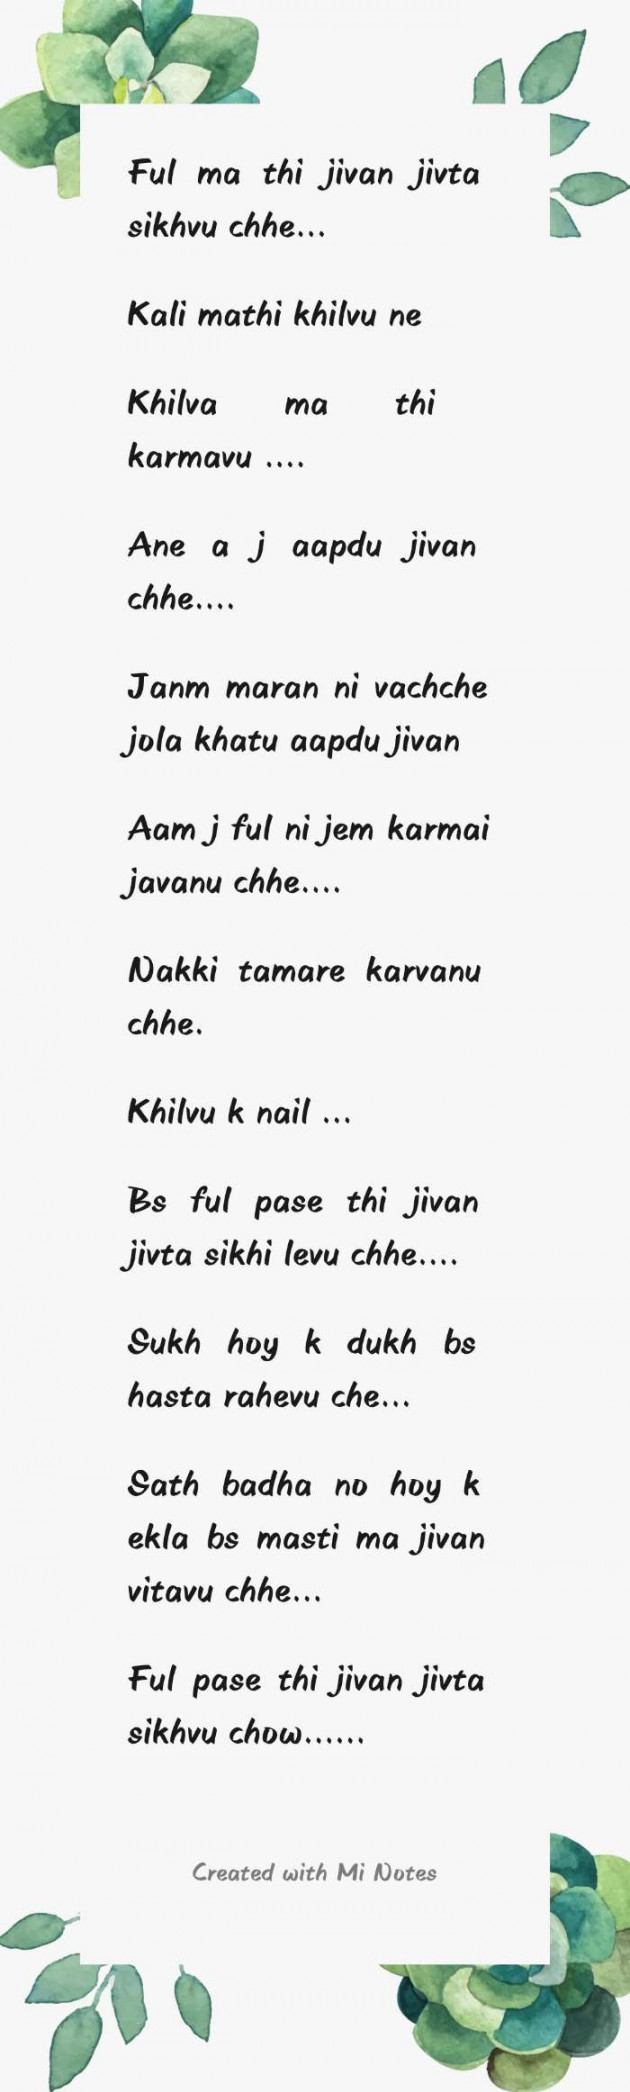 Ful ma thi jivan jivta
sikhvu chhe...
Kali mathi khilvu ne
Khilva ma thi
karmavu ....
Ane a j aapdu jivan
chhe....
Janm maran ni vachche
jola khatu aapdu jivan
Aam j ful ni jem karmai
javanu chhe....
Nakki tamare karvanu
chhe.
Khilvu k nail ...
Bs ful pase thi jivan
jivta sikhi levu chhe....
Sukh hoy k dukh bs
hasta rahevu che...
Sath badha no hoy k
ekla bs masti ma jivan
vitavu chhe...
Ful pase thi jivan jivta
sikhvu chow......
Created with Mi Notes